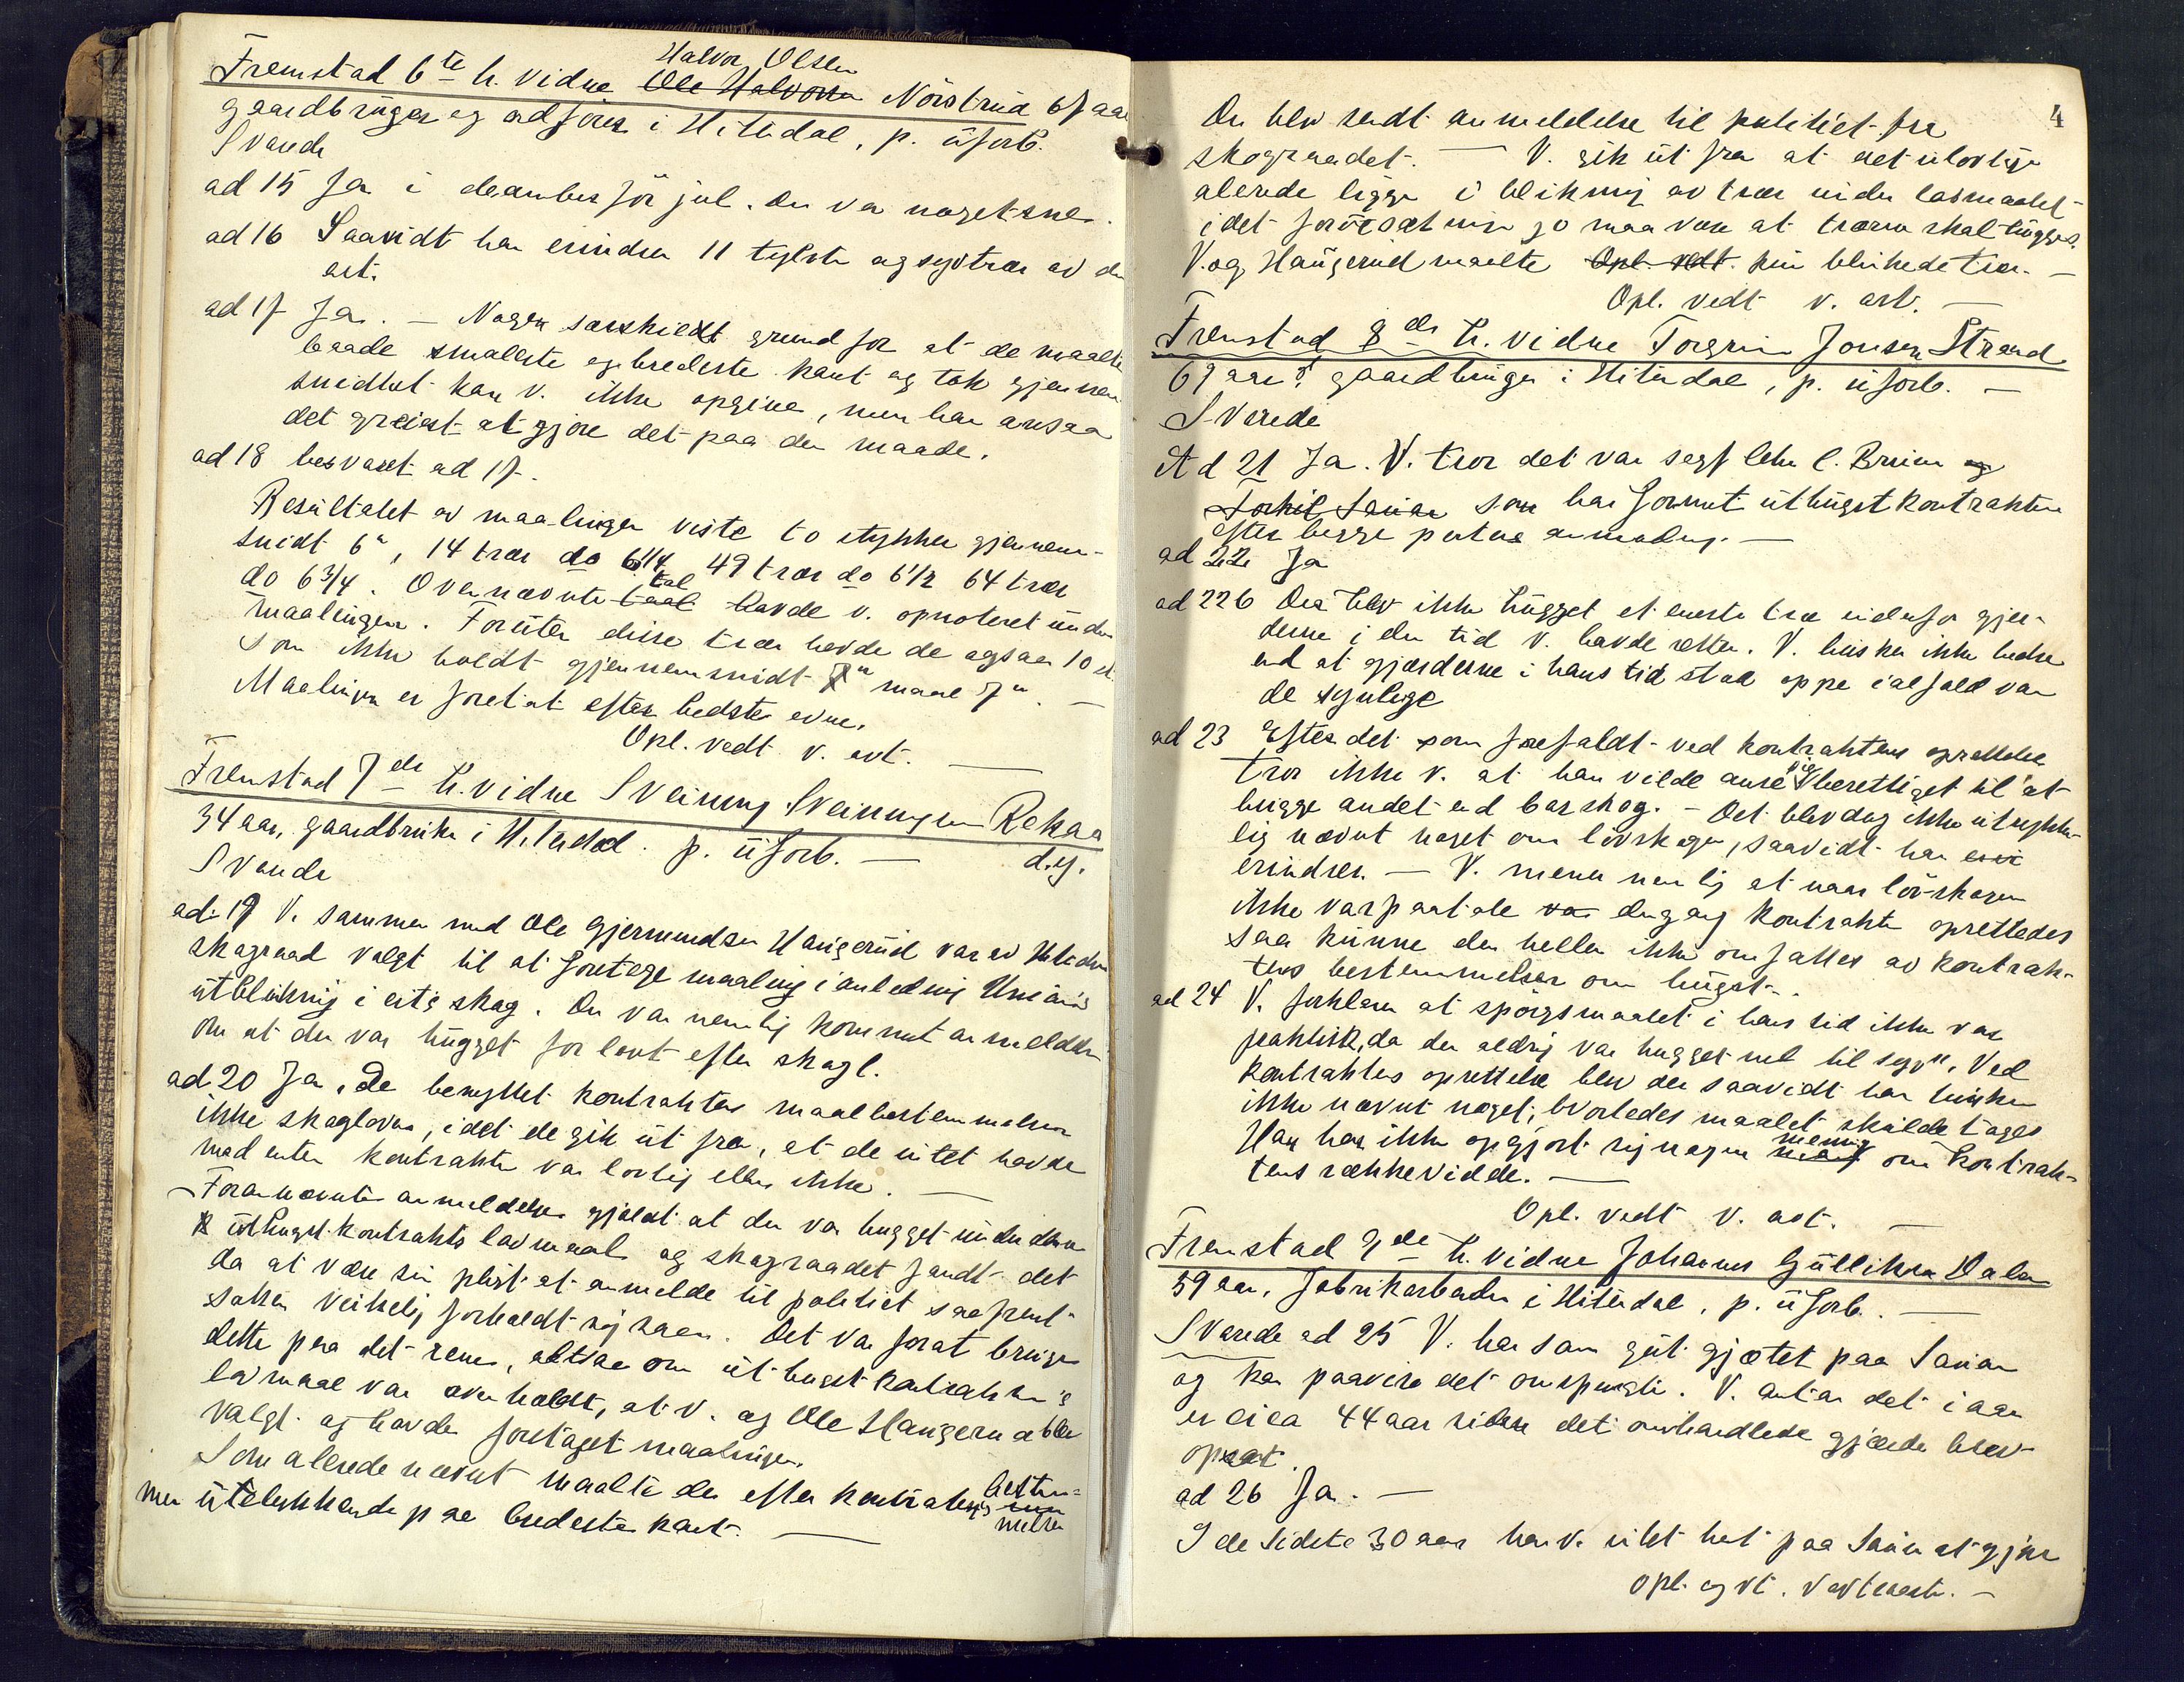 Halvor Olsen
Fremstad 6te h. vidne Ole Halvorsen Nörstrud 67 aar
gaardbruger og ordförer i Hiterdal, p. uforb.
Svarede
ad 15 Ja i december för jul. Der var noget sne.
ad 16 Saavidt han erindrer 11 tylvter og syv trær av den
art.
ad 17 Ja. — Nogen særskildt grund for at de maalte
baade smalleste og bredeste kant og tok gjennem
snidtet kan v. ikke opgive, men han ansaa
det greiest at gjöre det paa den maade.
ad 18 besvaret ad 17.
Resultatet av maalingen viste to stykker gjennem-
snidt 6", 14 trær do 6 1/4, 49 trær do 6 1/2 64 trær
do 6 3/4. Ovennævnte taal tal havde v. opnoteret under
maalingen. Foruten disse trær havde de ogsaa 10 st.
som ikke holdt gjennemsnidt maal 7". —
Maalingen er foretat efter bedste evne.
Opl. vedt. v. avt. —
Fremstad 7de h. vidne Sveinung Sveinungsen Rekaa
d.y.
34 aar, gaardbruker i Hiterdal. p. uforb. —
Svarede
ad 19 V. sammen med Ole Gjermundsen Haugerud var av Hiterdals
skograad valgt til at foretage maaling i anledning Unions
utblinkning i sit skog. Der var nemlig kommet anmeldelse
om at der var hugget for smaat efter skogl.
ad 20 Ja, de benyttet kontraktens maalbestemmelser
ikke skogloven, idet de gik ut fra, at de intet havde
med enten kontrakten var lovlig eller ikke. —
Forannævnte anmeldelse gjældt at der var hugget under denne
uthugst kontrakts lavmaal og skograadet fandt det
da at være sin plikt at anmelde til politiet saafremt
saken virkelig forholdt sig saan. Det var for at bringe
dette paa det rene, altsaa om uthugst kontraktens
lavmaal var overholdt, at v. og Ole Haugerud blev
valgt og havde foretaget maalingen.
Som allerede nævnt maalte de efter kontraktens bestem-
melser
men utelukkende paa bredeste kant. —
4
Der blev sendt anmeldelse til politiet fra
skograadet. — V. gik ut fra at det ulovlige
alerede ligger i blinkning av trær under lavmaalet
idet forutsætningen jo maa være at trærne skal hugges.
V. og Haugerud maalte Opl. vedt. kun blinkede trær. —
Opl. vedt. v. avt. —
Fremstad 8de h. vidne Torgrim Jonsen Strand
69 aar gaardbruger i Hiterdal, p. uforb. —
Svarede
Ad 21 Ja. V. tror det var sagf lehn C. Bruun og
Torkil Sauar som har formet uthugstkontrakten
efter begge parters anmodning. —
ad 22 Ja
ad 22b Der blev ikke hugget et eneste træ utenfor gjær-
derne i den tid v. havde retten. V. husker ikke bedre
end at gjærderne i hans tid stod oppe ialfald var
de synlige
ad 23 Efter det som forefaldt ved kontraktens oprettelse
tror ikke v. at han vilde anse sig berettiget til at
hugge andet end barskog. — Det blev dog ikke utrykke-
lig nævnt noget om lövskogen, saavidt han erin
erindrer. — V. mener nemlig at naar lövskogen
ikke var paatale var dengang kontrakten oprettedes
saa kunne den heller ikke omfattes av kontrak-
tens bestemmelser om hugst.
ad 24 V. forklarer at spörgsmaalet i hans tid ikke var
praktisk, da der aldrig var hugget ned til 7". Ved
kontraktens oprettelse blev der saavidt han husker
ikke nævnt noget, hvorledes maalet skulde tages
Han har ikke opgjort sig nogen mening om kontrak-
tens rækkevidde. —
Opl. vedt v. avt. —
Fremstad 9de h. vidne Johannes Gulliksen Dalen
59 aar, fabrikarbeider i Hiterdal, p. uforb. —
Svarede ad 25 V. har som gut gjætet paa Sauar
og kan paavise det omspurgte. V. antar det i aar
er circa 44 aar siden det omhandlede gjærde blev
opsat.
ad 26 Ja. —
I de sidste 30 aar har v. intet hat paa Sauar at gjöre
Opl. og vt. vedtaget. —